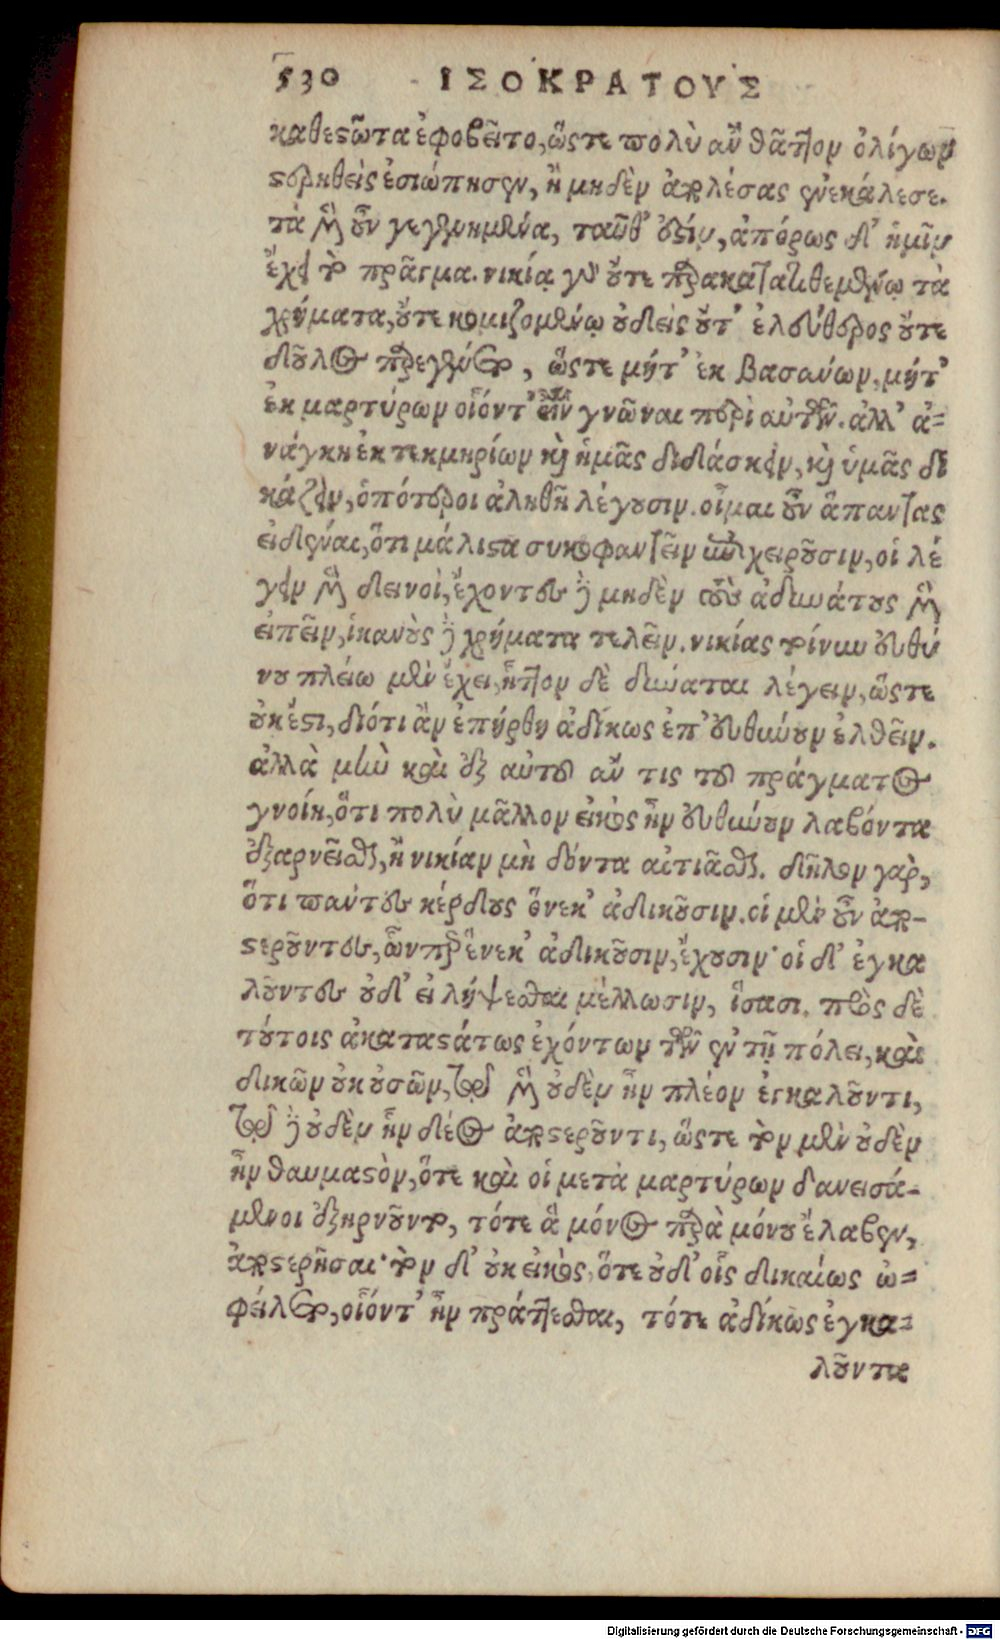 530 ΙΣΟΚΡΑΤΟΥΣ
καθεστῶτα ἐφοβεῖτο, ὥστε πολὺ ἂν θᾶττον ὀλίγων
στερηθεὶς ἐσιώπησεν, ἢ μηδὲν ἀπολέσας ἐνεκάλεσε.
τὰ μὲν οὖν γεγενημένα, ταῦθ' ἐστίν, ἀπόρως δ' ἡμῖν
ἔχει τὸ πρᾶγμα. νικίᾳ γὰρ οὔτε παρακατατιθεμένῳ τὰ
χρήματα, οὔτε κομιζομένῳ οὐδεὶς οὔτ' ἐλεύθερος οὔτε
δοῦλος παρεγένετο, ὥστε μήτ' ἐκ βασάνων, μήτ'
ἐκ μαρτύρων οἷόντ' εἶναι γνῶναι περὶ αὐτῶν. ἀλλ' ἀ-
νάγκη ἐκ τεκμηρίων καὶ ἡμᾶς διδάσκειν, καὶ ὑμᾶς δι
κάζειν, ὁπότεροι ἀληθῆ λέγουσιν. οἶμαι οὖν ἅπαντας
εἰδέναι, ὅτι μάλιστα συκοφαντεῖν ἐπιχειροῦσιν, οἱ λέ
γειν μὲν δεινοὶ, ἔχοντες δὲ μηδὲν τοὺς ἀδυνάτους μὲν
εἰπεῖν, ἱκανοὺς δὲ χρήματα τελεῖν. νικίας τοίνυν εὐθύ
νου πλείω μὲν ἔχει, ἧττον δὲ δύναται λέγειν, ὥστε
οὐκ ἔστι, διότι ἂν ἐπήρθη ἀδίκως ἐπ' εὐθύνουν ἐλθεῖν.
ἀλλὰ μὴν καὶ ἐξ αὐτοῦ ἄν τις τοῦ πράγματος
γνοίη, ὅτι πολὺ μᾶλλον εἰκὸς ἦν εὐθύνουν λαβόντα
ἐξαρνεῖσθαι, ἢ νικίαν μὴ δόντα αἰτιᾶσθαι. δῆλον γὰρ,
ὅτι πάντες κέρδους ἕνεκ' ἀδικοῦσιν. οἱ μὲν οὖν ἀπο-
στεροῦντες, ὧνπερ ἕνεκ' ἀδικοῦσιν, ἔχουσιν· οἱ δ' ἐγκα
λοῦντες οὐδ' εἰ λήψεσθαι μέλλωσιν, ἴσασι. πρὸς δὲ
τούτοις ἀκαταστάτως ἐχόντων τῶν ἐν τῇ πόλει, καὶ
δικῶν οὐκ οὐσῶν, τῷ μὲν οὐδὲν ἦν πλέον ἐγκαλοῦντι,
τῷ δὲ οὐδὲν ἦν δέος ἀποστεροῦντι, ὥστε τὸν μὲν οὐδὲν
ἦν θαυμαστὸν, ὅτε καὶ οἱ μετὰ μαρτύρων δανεισά-
μενοι ἐξηρνοῦντο, τότε ἃ μόνος παρὰ μόνου ἔλαβεν,
ἀποστερῆσαι· τὸν δ' οὐκ εἰκὸς, ὅτε οὐδ' οἷς δικαίως ὠ-
φείλετο, οἷόντ' ἦν πράττεσθαι, τότε ἀδίκως ἐγκα-
λοῦντα
Digitalisierung gefördert durch die Deutsche Forschungsgemeinschaft - DFG